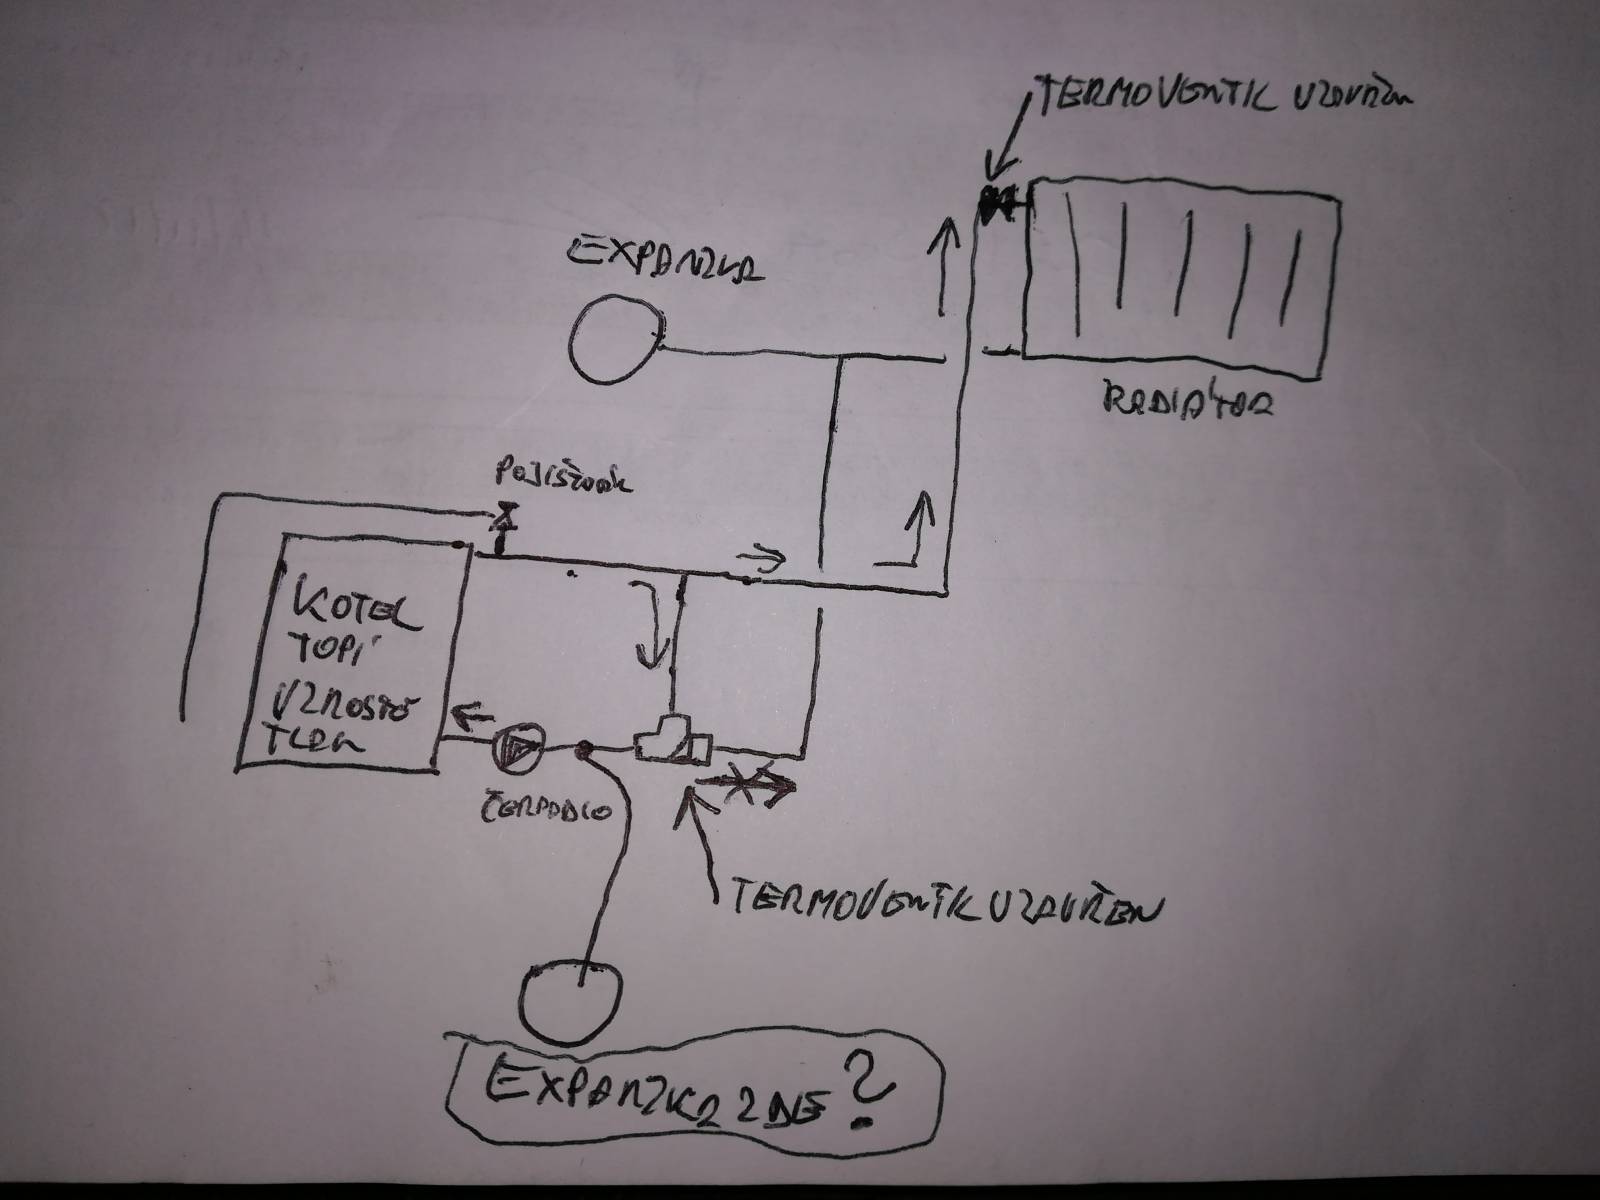 TERMOVENTIL UZAVŘEN
EXPANZKA
RADIÁTOR
POJIŠŤOVÁK
KOTEL
TOPÍ
VZROSTĚ
TLAK
ČERPADLO
TERMOVENTIL UZAVŘEN
EXPANZKA ZDE?